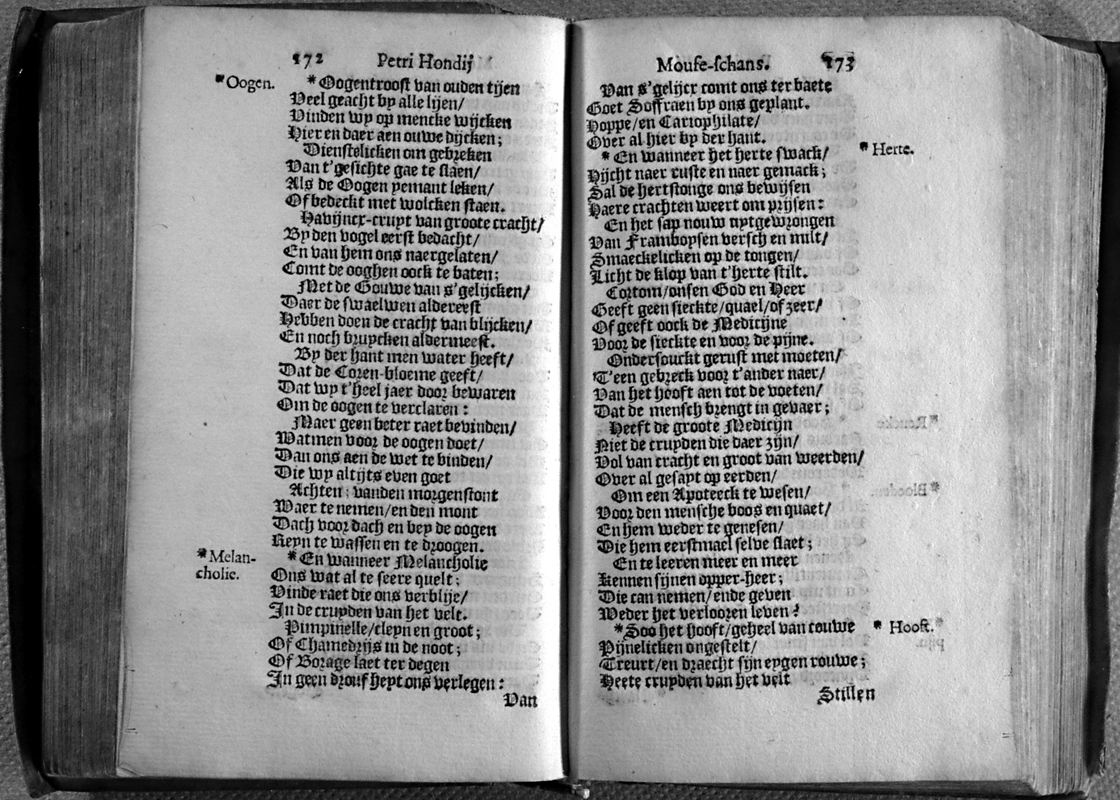 172 Petri Hondij
* Oogen.
* Oogentroost van ouden tijen
Veel geacht by alle lijen/
Vinden wy op mencke wijcken
Hier en daer aen ouwe dijcken;
Dienstelicken om gebreken
Van t'gesichte gae te slaen/
Als de Oogen yemant leken/
Of bedeckt met wolcken staen.
Havijncx-cruyt van groote cracht/
By den vogel eerst bedacht/
En van hem ons naergelaten/
Comt de ooghen oock te baten;
Met de Gouwe van s'gelijcken/
Daer de swaelwen aldereerst
Hebben doen de cracht van blijcken/
En noch bruycken aldermeest.
By der hant men water heeft/
Dat de Coren-bloeme geeft/
Dat wy t'heel jaer door bewaren
Om de oogen te verclaren:
Maer geen beter raet bevinden/
Watmen voor de oogen doet/
Dan ons aen de wet te binden/
Die wy altijts even goet
Achten; vanden morgenstont
Waer te nemen/en den mont
Dach voor dach en bey de oogen
Reyn te wassen en te droogen.
* Melan-
cholie.
* En wanneer Melancholie
Ons wat al te seere quelt;
Vinde raet die ons verblije/
In de cruyden van het velt.
Pimpinelle/cleyn en groot;
Of Chamedrijs in de noot;
Of Borage laet ter degen
In geen drouf heyt ons verlegen:
Van
Moufe-schans. 173
Van s'gelijcx comt ons ter baete
Goet Soffraen by ons geplant.
Hoppe/en Cariophilate/
Over al hier by der hant.
* En wanneer het herte swack/
* Herte.
Hijcht naer ruste en naer gemack;
Sal de hertstonge ons bewijsen
Haere crachten weert om prijsen:
En het sap nouw uytgewrongen
Van Framboysen versch en milt/
Smaeckelicken op de tongen/
Licht de klop van t'herte stilt.
Cortom/onsen God en Heer
Geeft geen sieckte/quael/of zeer/
Of geeft oock de Medicijne
Voor de sieckte en voor de pijne.
Ondersouckt gerust met moeten/
T'een gebreck voor t'ander naer/
Van het hooft aen tot de voeten/
Dat de mensch brengt in gevaer;
Heeft de groote Medicijn
Niet de cruyden die daer zijn/
Vol van cracht en groot van weerden/
Over al gesayt op eerden/
Om een Apoteeck te wesen/
Voor den mensche boos en quaet/
En hem weder te genesen/
Die hem eerstmael selve slaet;
En te leeren meer en meer
Kennen sijnen opper-heer;
Die can nemen/ende geven
Weder het verlooren leven?
* Soo het hooft/geheel van touwe
* Hooft.
Pijnelicken ongestelt/
Treurt/en draecht sijn eygen rouwe;
Heete cruyden van het velt
Stillen